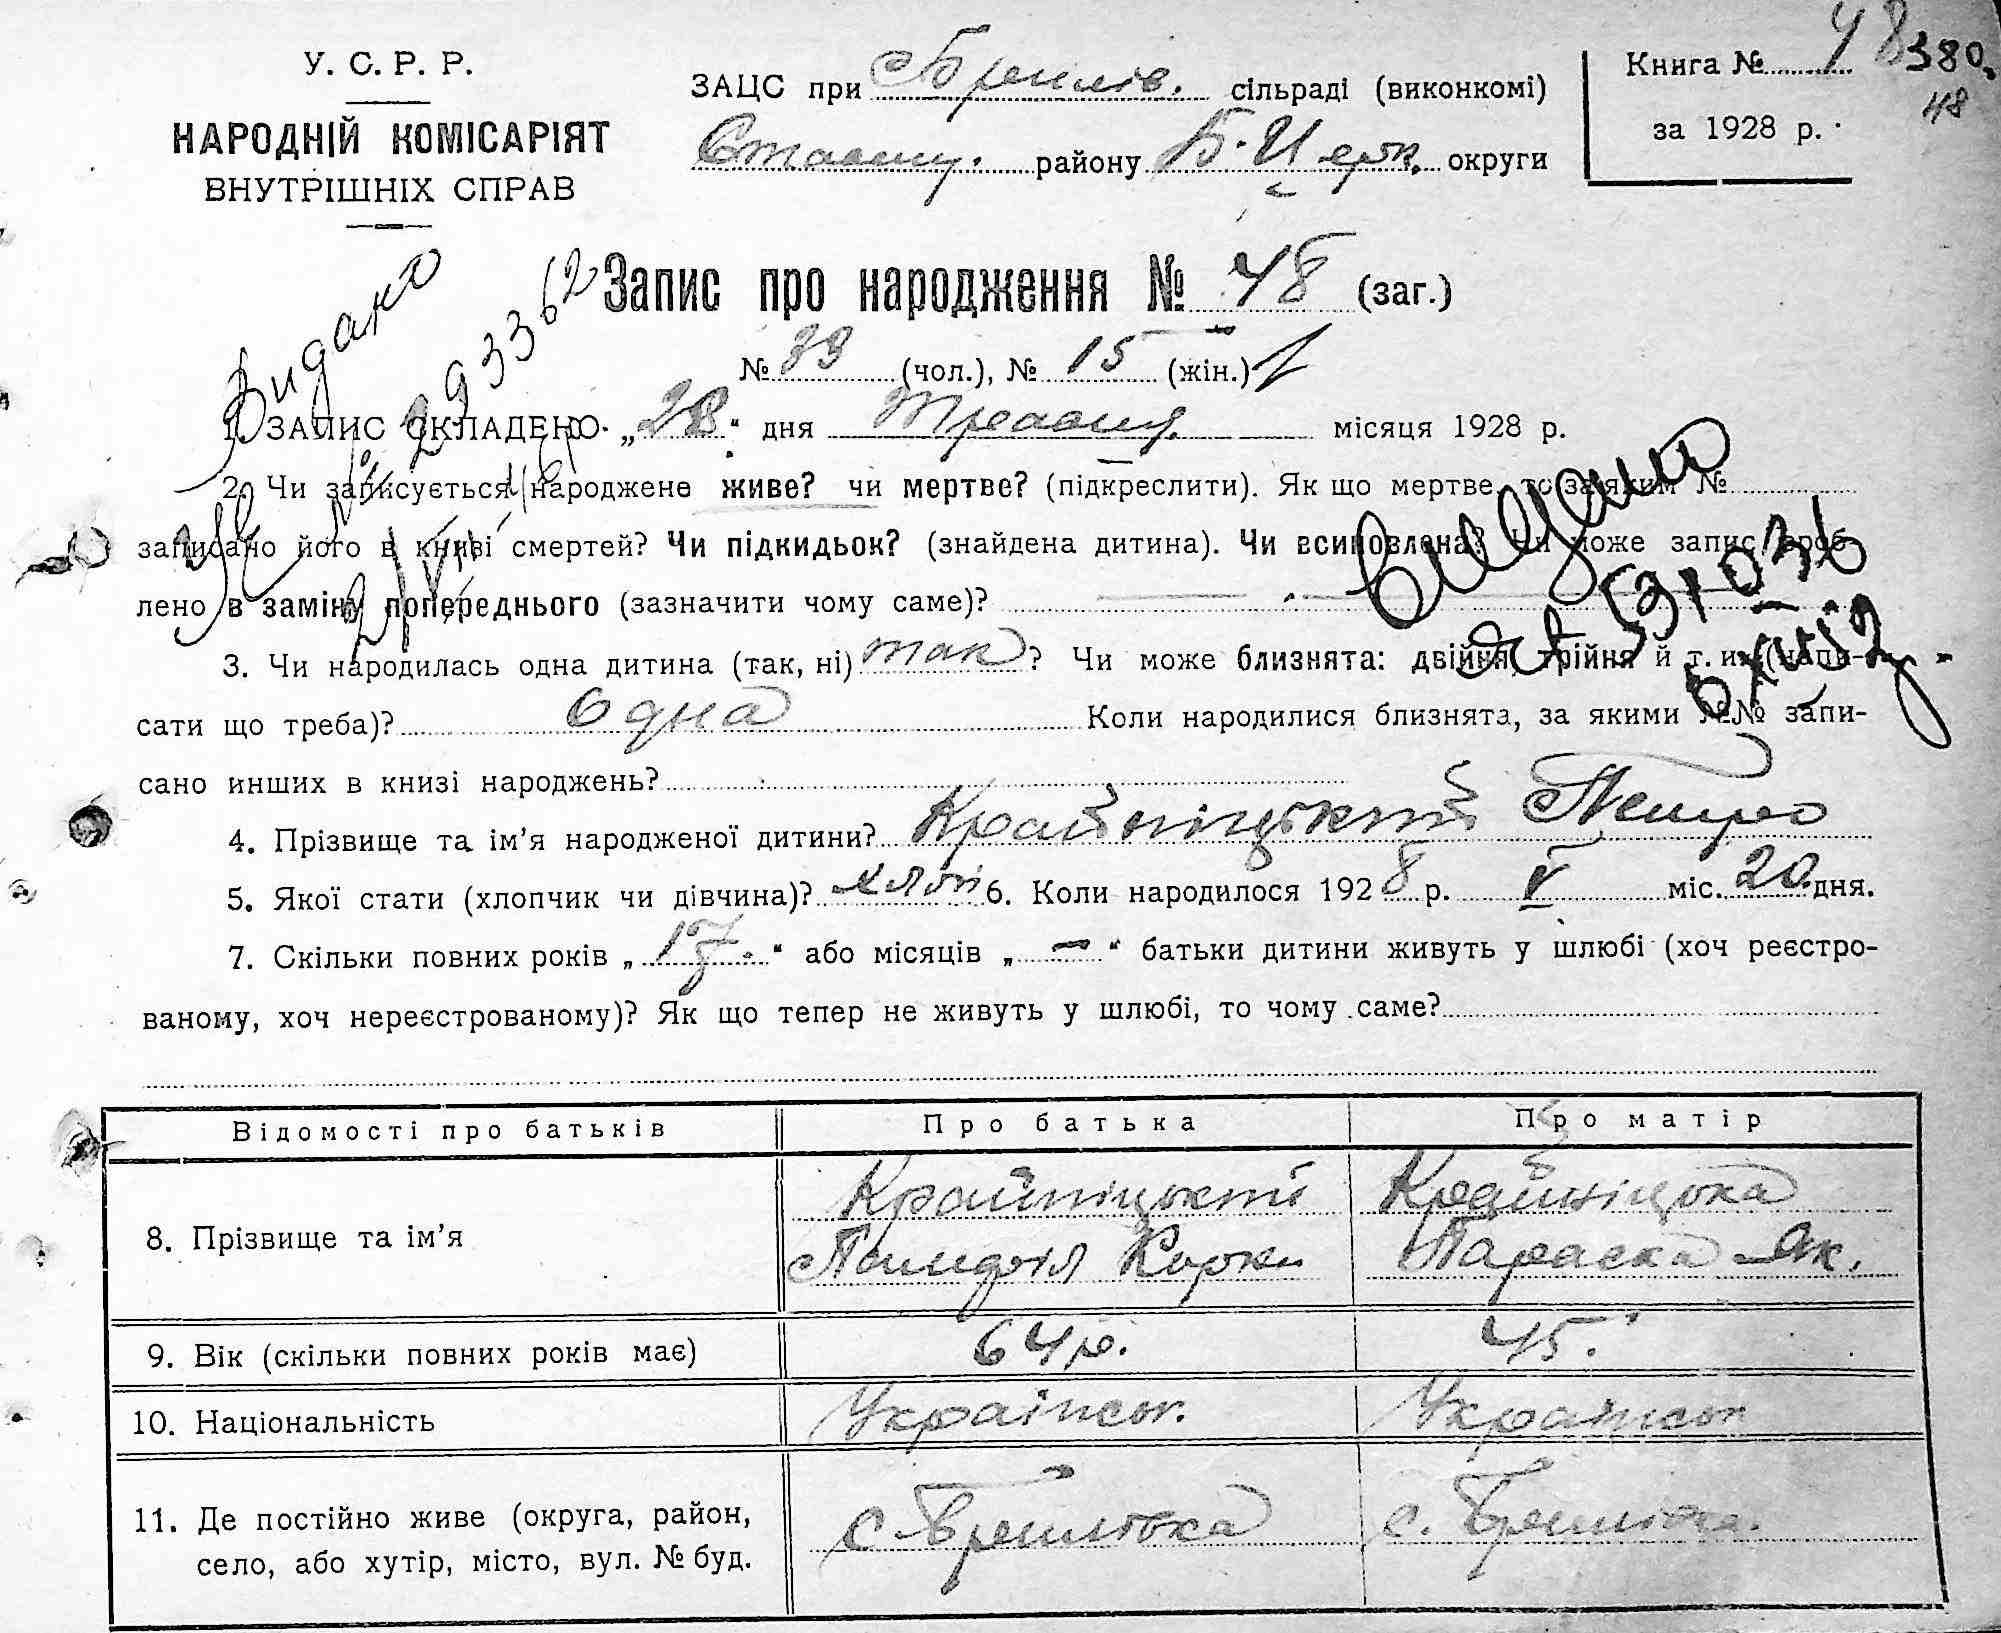 У. С. Р. Р.
НАРОДНІЙ КОМІСАРІЯТ
ВНУТРІШНІХ СПРАВ
ЗАЦС при Бреилів. сільраді (виконкомі)
Ставищ. району Б-Церк. округи
Книга № 48 380
48
за 1928 р.
Запис про народження № 48 (заг.)
№ 33 (чол.), № 15 (жін.)
Видано
1. ЗАПИС СКЛАДЕНО „28“ дня Травня місяця 1928 р.
2. Чи записується народжене живе? чи мертве? (підкреслити). Як що мертве, то за яким №
записано його в книзі смертей? Чи підкидьок? (знайдена дитина). Чи всиновлена? Чи може запис зроб-
лено в заміну попереднього (зазначити чому саме)?
Видано
3. Чи народилась одна дитина (так, ні) так? Чи може близнята: двійня, трійня й т. ин. (напи-
сати що треба)? Одна Коли народилися близнята, за якими №№ запи-
сано инших в книзі народжень?
4. Прізвище та ім’я народженої дитини? Крайніцький Петро
5. Якої стати (хлопчик чи дівчина)? хлоп 6. Коли народилося 1928 р. V міс. 20 дня.
7. Скільки повних років „17.“ або місяців „—“ батьки дитини живуть у шлюбі (хоч реєстро-
ваному, хоч нереєстрованому)? Як що тепер не живуть у шлюбі, то чому саме?
Відомості про батьків Про батька Про матір
8. Прізвище та ім’я Крайніцький Крайніцька
Памфіл Параска Як.
9. Вік (скільки повних років має) 64 р. 45.
10. Національність Українськ. Українськ
11. Де постійно живе (округа, район,
село, або хутір, місто, вул. № буд.